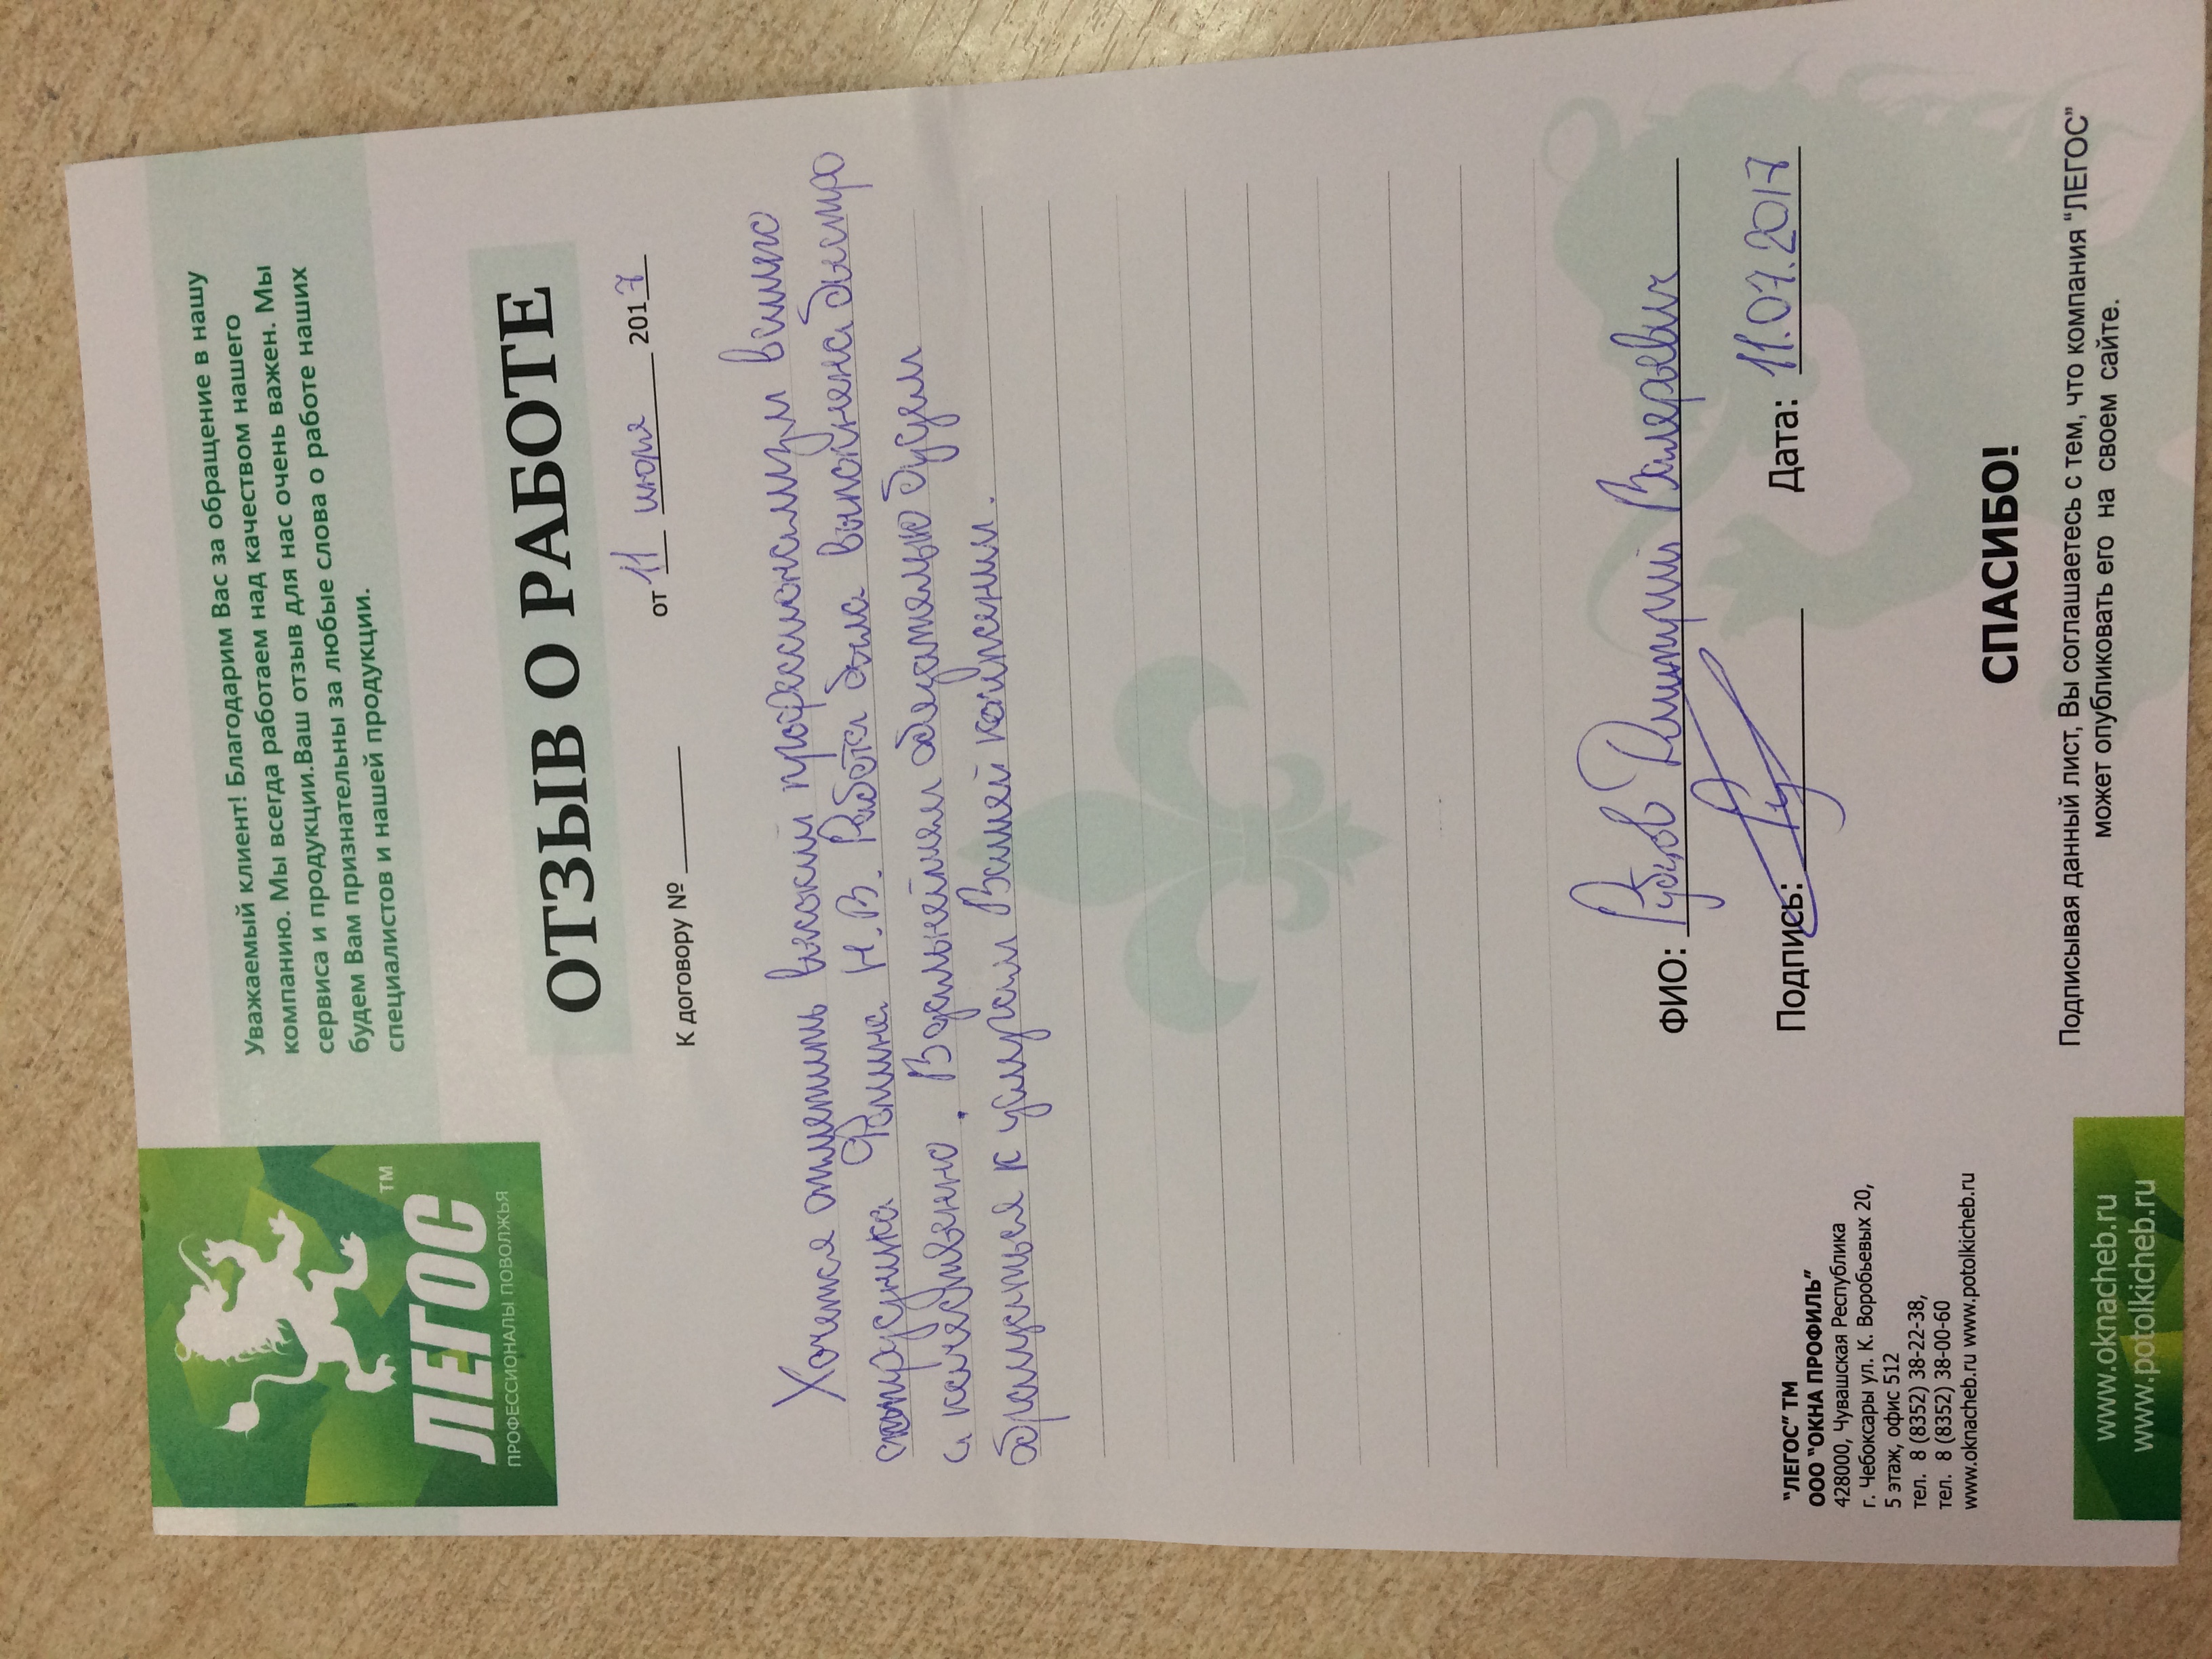 ЛЕГОС
TM
ПРОФЕССИОНАЛЫ ПОВОЛЖЬЯ
Уважаемый клиент! Благодарим Вас за обращение в нашу
компанию. Мы всегда работаем над качеством нашего
сервиса и продукции.Ваш отзыв для нас очень важен. Мы
будем Вам признательны за любые слова о работе наших
специалистов и нашей продукции.
ОТЗЫВ О РАБОТЕ
К договору № от 11 июля 2017
Хочется отметить высокий профессионализм вашего
сотрудника Фомина Н.В. Работа была выполнена быстро
и качественно. В дальнейшем обязательно будем
обращаться к услугам Вашей компании.
ФИО: Рубцов Дмитрий Валерьевич
Подпись: Дата: 11.07.2017
"ЛЕГОС" ТМ
ООО "ОКНА ПРОФИЛЬ"
428000, Чувашская Республика
г. Чебоксары ул. К. Воробьевых 20,
5 этаж, офис 512
тел. 8 (8352) 38-22-38,
тел. 8 (8352) 38-00-60
www.oknacheb.ru www.potolkicheb.ru
СПАСИБО!
Подписывая данный лист, Вы соглашаетесь с тем, что компания "ЛЕГОС"
может опубликовать его на своем сайте.
www.oknacheb.ru
www.potolkicheb.ru